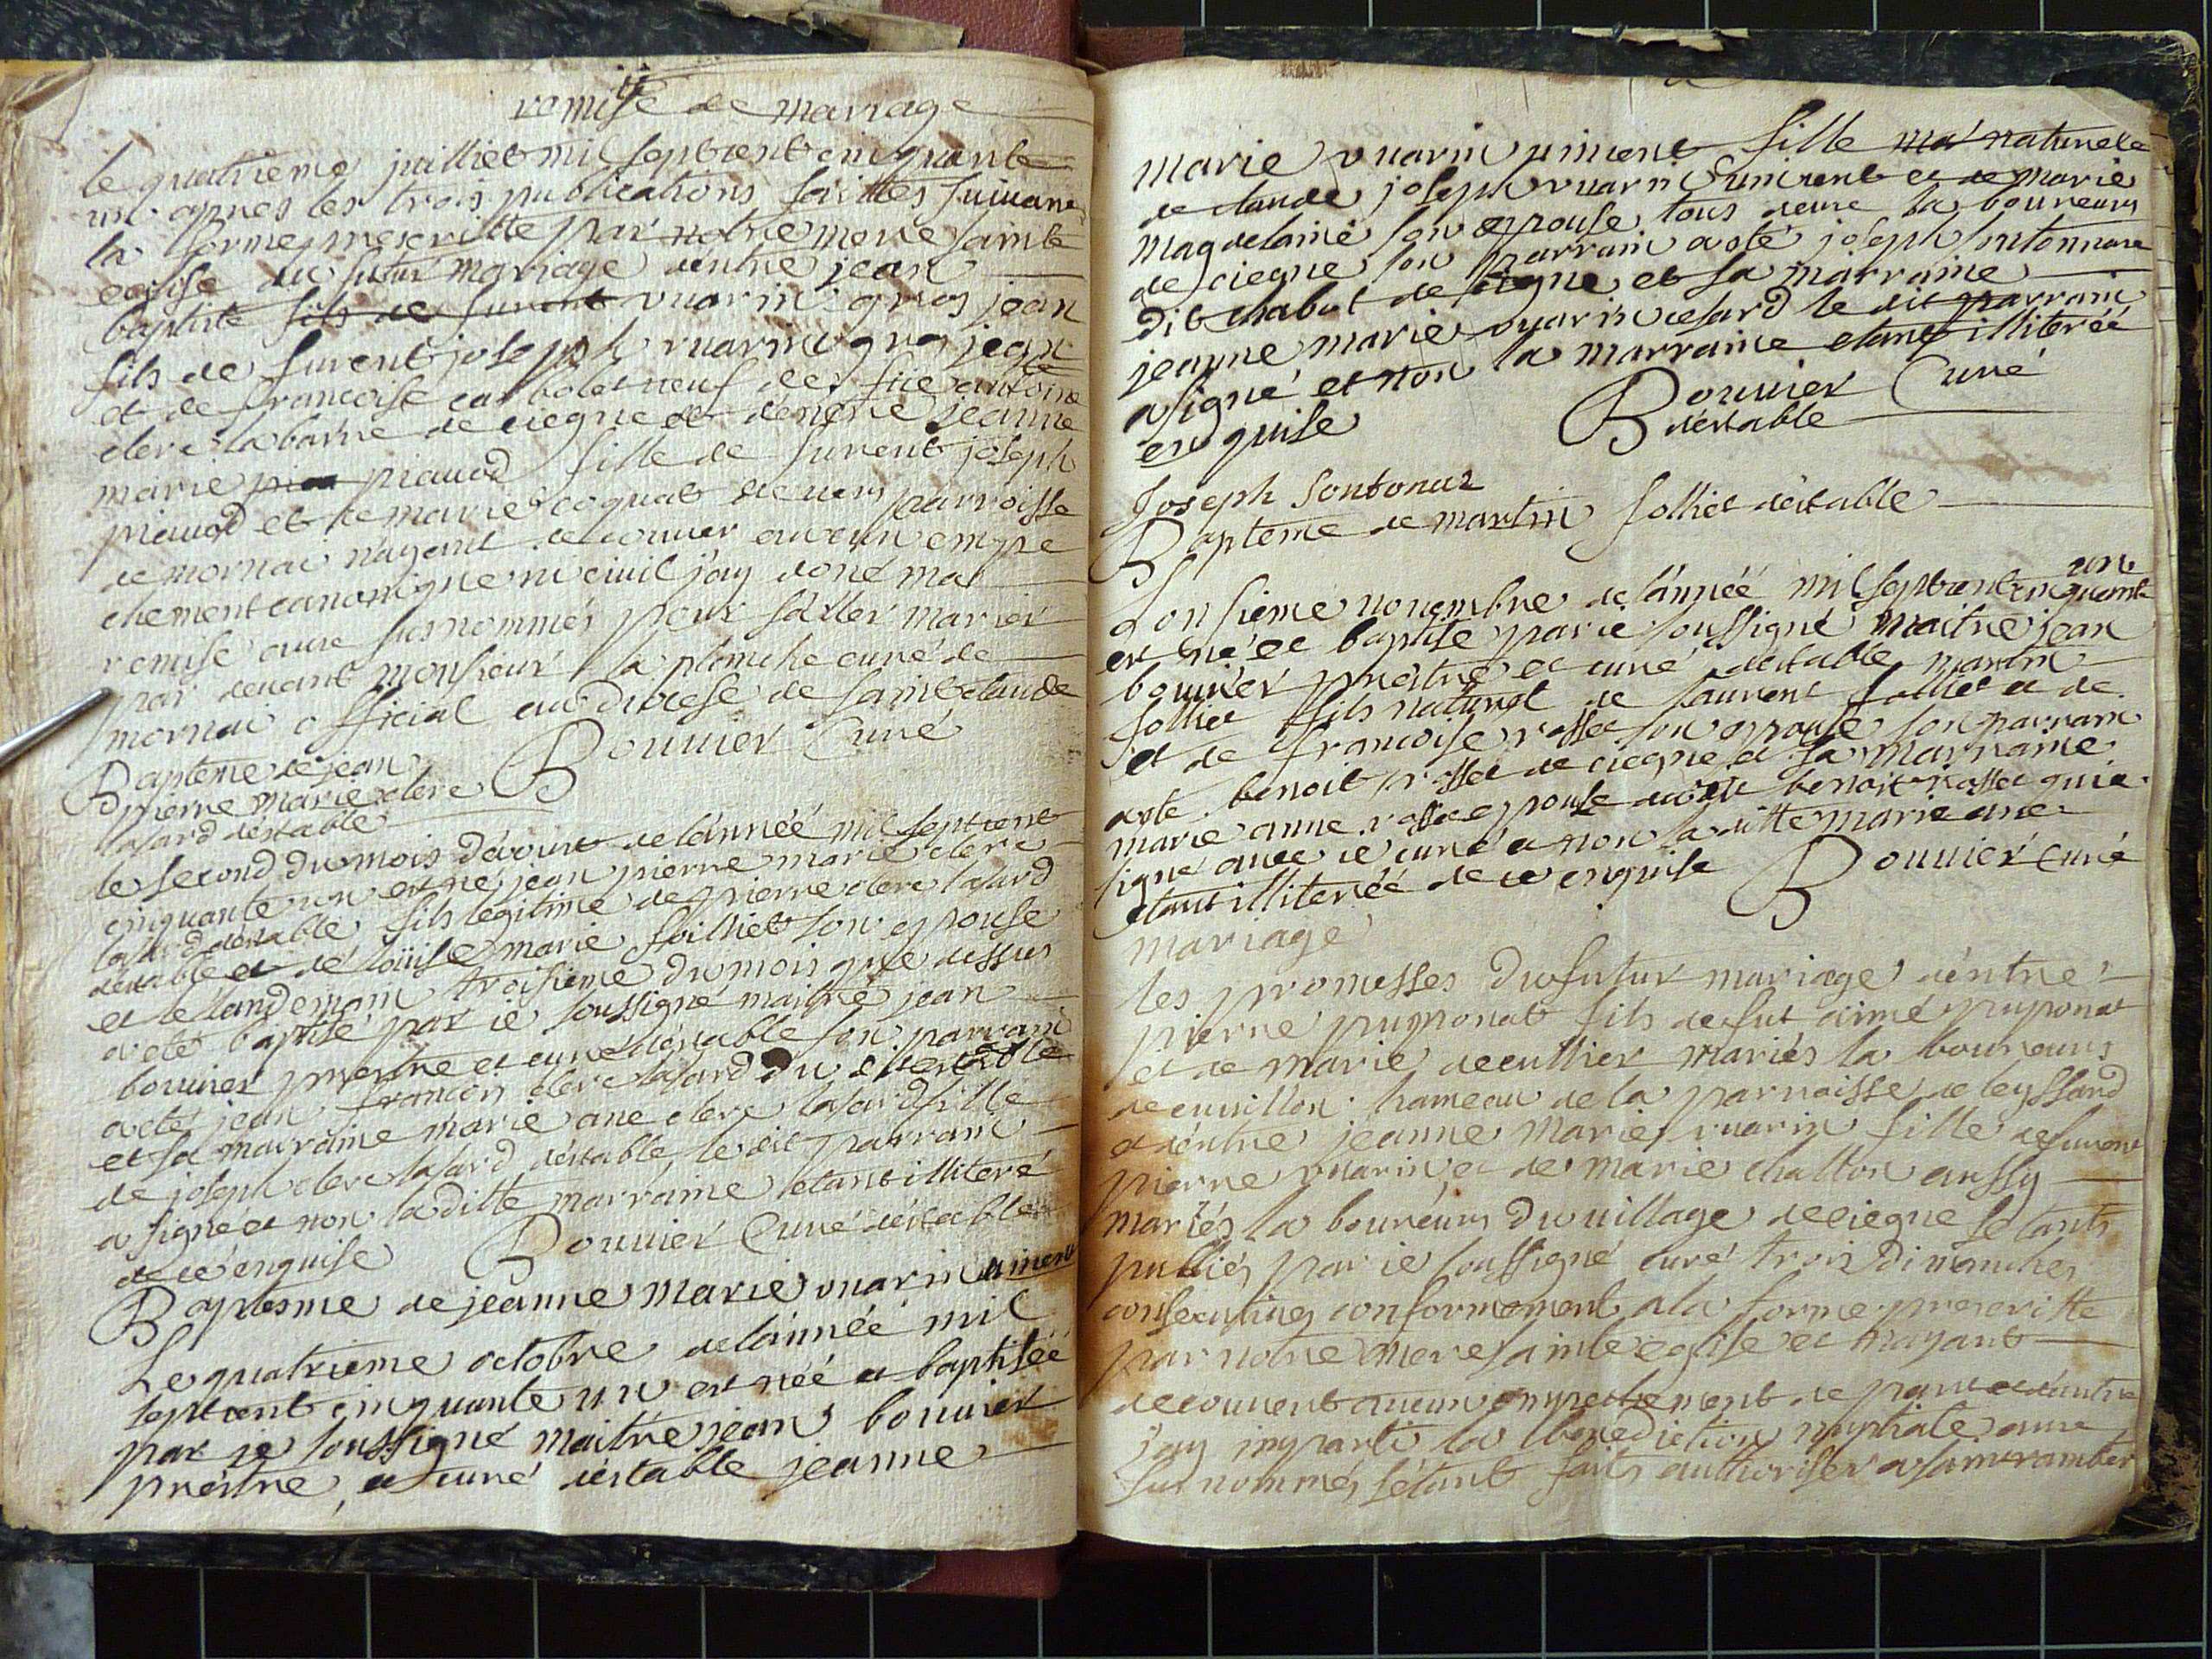 remise de mariage
le quatrieme juilliet mil septcent cinquante
un apres les trois publications faittes suivant
la forme prescritte par notre mere sainte
eglise du futur mariage dentre jean
baptiste fils de furent vuarin gros jean
fils de furent joseph vuarin gros jean
et de francoise
clerc la barre de ciegne et dentre jeanne
marie piaud fille de furent joseph
piaud et de marie coquat de vers parroisse
de mornai nayant decouver aucun empe
chement canonique ni civil jay doné ma
remise aux susnommés pour saller marier
par devant monsieur la planche curé de
mornai official au diocese de saint claude
Bouvier Curé
Bapteme de jean
pierre marie clerc
lasard destable
le second du mois davoust de lánnée mil septcent
cinquante un est né jean pierre marie clerc
lasard destable fils legitime de pierre clerc lasard
destable et de loüise marie folliet son epouse
et le landemain troisieme du mois que dessus
a eté baptisé par ie soussigné maitre jean
bouvier prestre et curé déstable son parrain
a eté jean francois clerc lasard du dit estable
et sa marraine marie ane clerc lasard fille
de joseph clerc lasard destable, le dit parrain
a signé et non la ditte marraine etant illiteré
de ce enquise Bouvier Curé déstable
Baptesme de jeanne marie vuarin uniment
Le quatrieme octobre de lánnée mil
septcent cinquante un est née et baptisée
par je soussigné maitre jean bouvier
prestre, et curé déstable jeanne
marie vuarin uniment fille naturelle
de claude joseph vuarin uniment et de marie
magdelaine son epouse tous deux laboureurs
de ciegne son parrain a oté joseph sontonnax
dit chabut de ciegne et sa marraine
jeanne marie vuarin lasard le dit parrain
a signé et non la marraine etant illiterée
enquise Bouvier Curé
déstable
Joseph Sontonax
Bapteme de martin folliet déstable
un
Lonsieme novembre de lánnée mil septcent cinquante
est né et baptisé par ie soussigné maitre jean
bouvier prestre et curé destable martin
folliet fils naturel de laurent folliet et de
et de francoise rosset son epouse son parrain
a eté benoit rosset de ciegne et sa marraine
marie anne rosset epouse dudit benoit rosset qui a
signé avec ie curé et non la ditte marie ane
etant illiterée de ce enquise Bouvier Curé
mariage
les promesses du futur mariage déntre
pierre puponat fils de fut aimé puponat
et de marie mariés laboureurs
de cuvillon hameau de la parroisse de leyssard
et déntre jeanne marie vuarin fille de furent
pierre vuarin, et de marie challon aussy
mariés laboureurs du village de ciegne setants
publiés par ie soussigné curé trois dimanches
consecutives conformement a la forme prescritte
par notre mere sainte eglise et nayant
decouvert aucun empechement de part et dautre
jay imparti la benediction nuptiale aux
susnommés setant faits authoriser a saint rambert